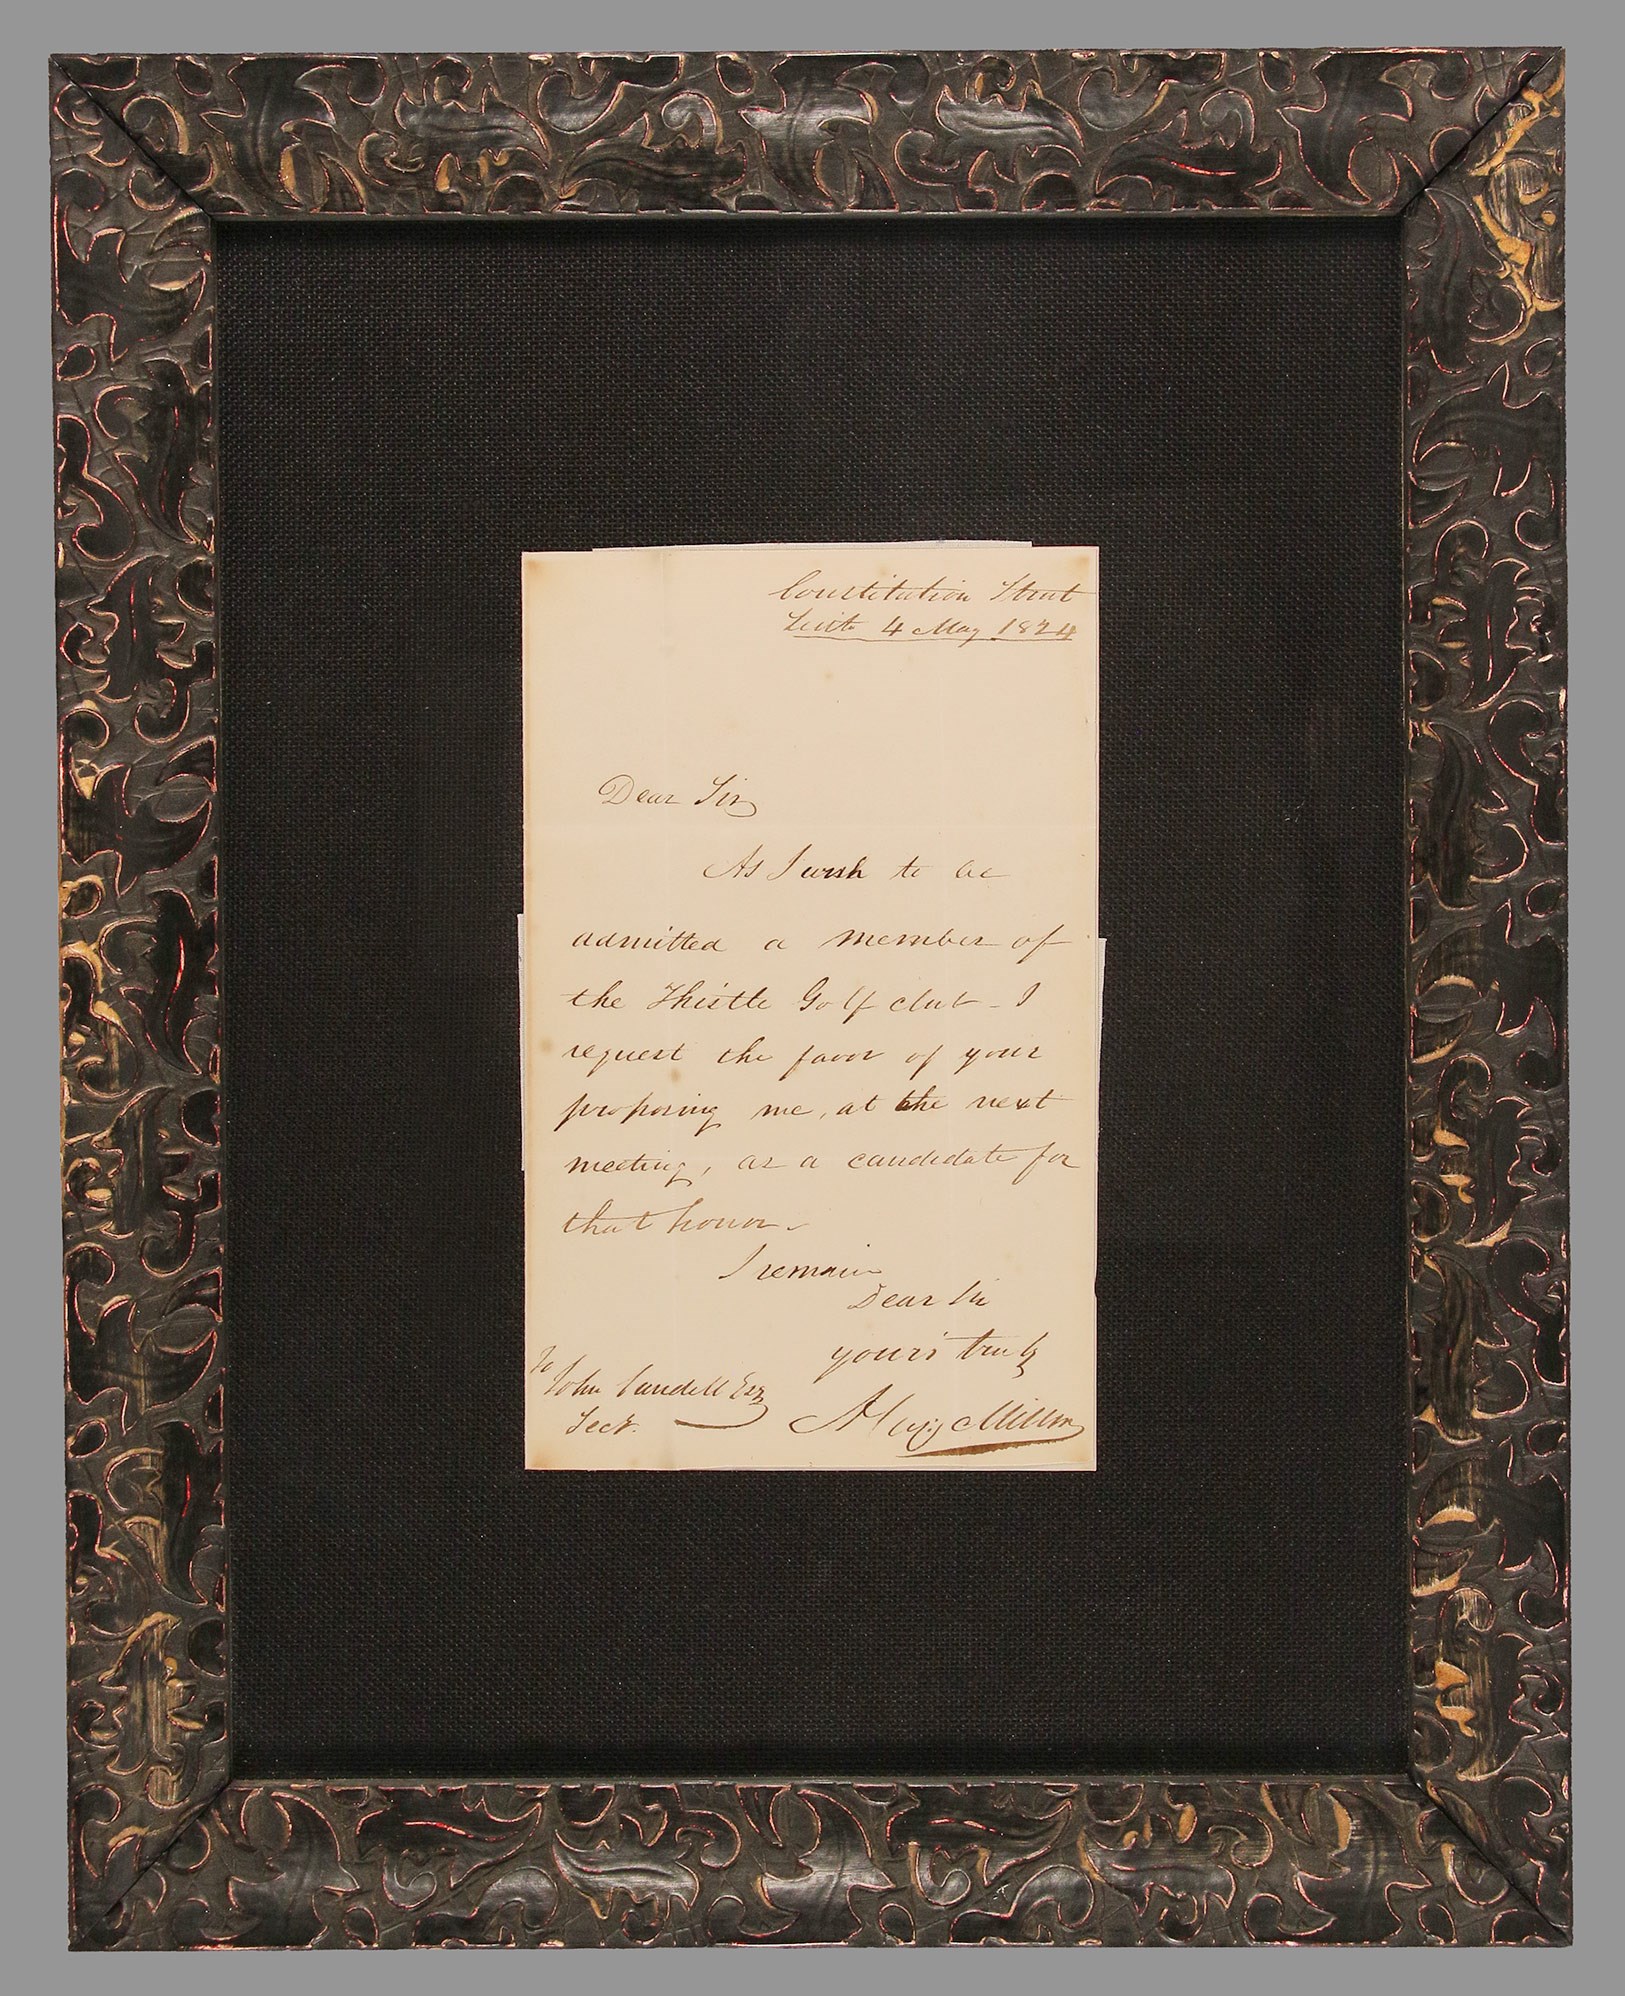 Constitution Street
Leith 4 May 1824
Dear Sir
As I wish to be
admitted a member of
the Thistle Golf club - I
request the favor of your
proposing me, at the next
meeting, as a candidate for
that honor.
I remain
Dear Sir
your's truly
To
John Cundell Esqr
Secy.